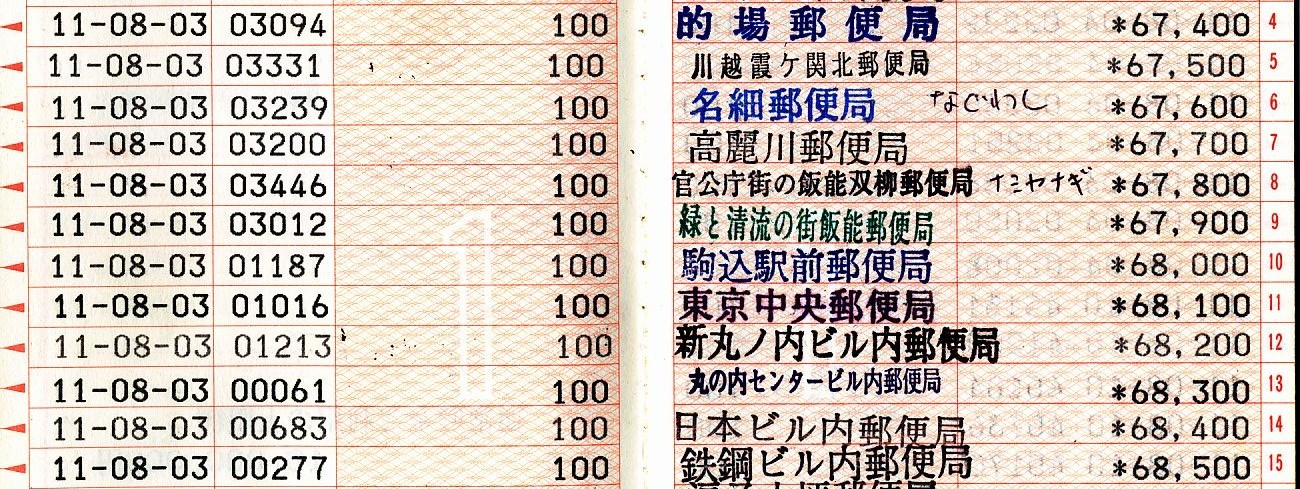 11-08-03 03094 100 的場郵便局 *67,400 4
11-08-03 03331 100 川越霞ケ関北郵便局 *67,500 5
11-08-03 03239 100 名細郵便局 なぐわし *67,600 6
11-08-03 03200 100 高麗川郵便局 *67,700 7
11-08-03 03446 100 官公庁街の飯能双柳郵便局 ナミヤナギ *67,800 8
11-08-03 03012 100 緑と清流の街飯能郵便局 *67,900 9
11-08-03 01187 100 駒込駅前郵便局 *68,000 10
11-08-03 01016 100 東京中央郵便局 *68,100 11
11-08-03 01213 100 新丸ノ内ビル内郵便局 *68,200 12
11-08-03 00061 100 丸の内センタービル内郵便局 *68,300 13
11-08-03 00683 100 日本ビル内郵便局 *68,400 14
11-08-03 00277 100 鉄鋼ビル内郵便局 *68,500 15